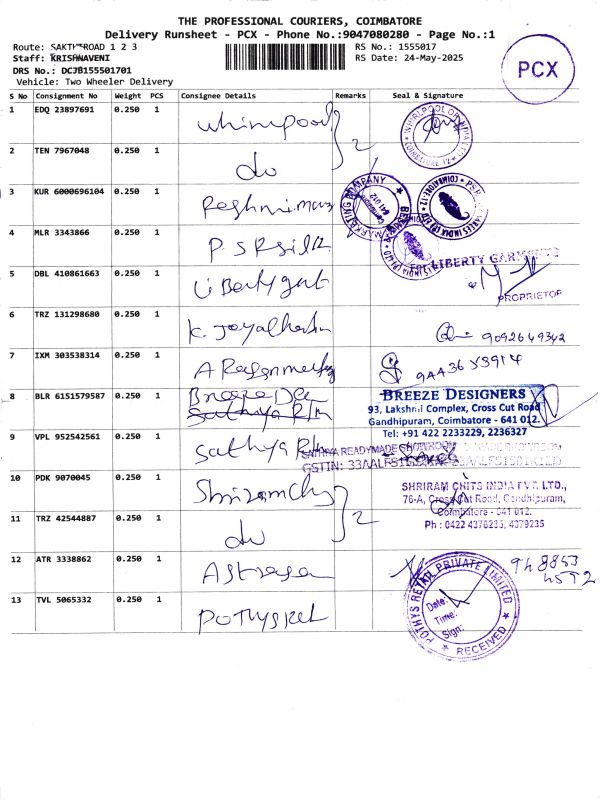 THE PROFESSIONAL COURIERS, COIMBATORE
Delivery Runsheet - PCX - Phone No.:9047080280 - Page No.:1
Route: SAKTHI ROAD 1 2 3
RS No.: 1555017
Staff: KRISHNAVENI
RS Date: 24-May-2025
DRS No.: DCJB155501701
Vehicle: Two Wheeler Delivery
PCX
S No Consignment No Weight PCS Consignee Details Remarks Seal & Signature
1 EDQ 23897691 0.250 1 Whirlpool
WHIRLPOOL OF INDIA LTD COIMBATORE-12
2 TEN 7967048 0.250 1 do 2
3 KUR 6000696104 0.250 1
MARKETING COMPANY 641 012
4 MLR 3343866 0.250 1 P S R Silk
5 DBL 410861663 0.250 1
For LIBERTY GARMENTS
PROPRIETOR
6 TRZ 131298680 0.250 1 K. Jeyalakshmi
9092649342
7 IXM 303538314 0.250 1
9443653914
8 BLR 6151579587 0.250 1 Breeze Des
Sathya R/m
BREEZE DESIGNERS
93, Lakshmi Complex, Cross Cut Road
Gandhipuram, Coimbatore - 641 012.
Tel: +91 422 2233229, 2236327
9 VPL 952542561 0.250 1 Sathya R/m
SATHYA READYMADE SHOWROOM
GSTIN: 33AALFS1501
10 PDK 9070045 0.250 1 Shriram Chits
SHRIRAM CHITS INDIA PVT. LTD.,
76-A, Cross Cut Road, Gandhipuram,
Coimbatore - 641 012.
Ph : 0422 4376235, 4379235
11 TRZ 42544887 0.250 1 do 2
12 ATR 3338862 0.250 1
948853
4572
13 TVL 5065332 0.250 1 Pothys Ret
POTHYS RETAIL PRIVATE LIMITED
Date:
Time:
Sign:
RECEIVED